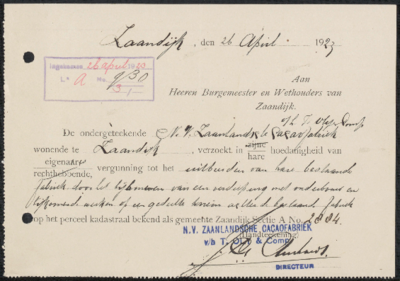 Zaandijk, den 26 April 1923
Ingekomen 26 April 1920
La A No. 930
3-1
Aan
Heeren Burgemeester en Wethouders van
Zaandijk.
v/h T. Olij & Comp
De ondergeteekende N.V. Zaanlandsche Cacaofabriek
wonende te Zaandijk verzoekt in zijne hare hoedanigheid van
eigenares
rechthebbende, vergunning tot het uitbreiden van hare bestaande
fabriek door het bijbouwen van een verdieping met onderbouw en
op het perceel kadastraal bekend als gemeente Zaandijk Sectie A No. 2884.
N.V. ZAANLANDSCHE CACAOFABRIEK
(Handteekening)
v/h T. OLIJ & Comp.
DIRECTEUR